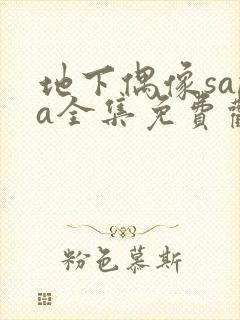 地下偶像sa
a全集免費
粉色慕斯